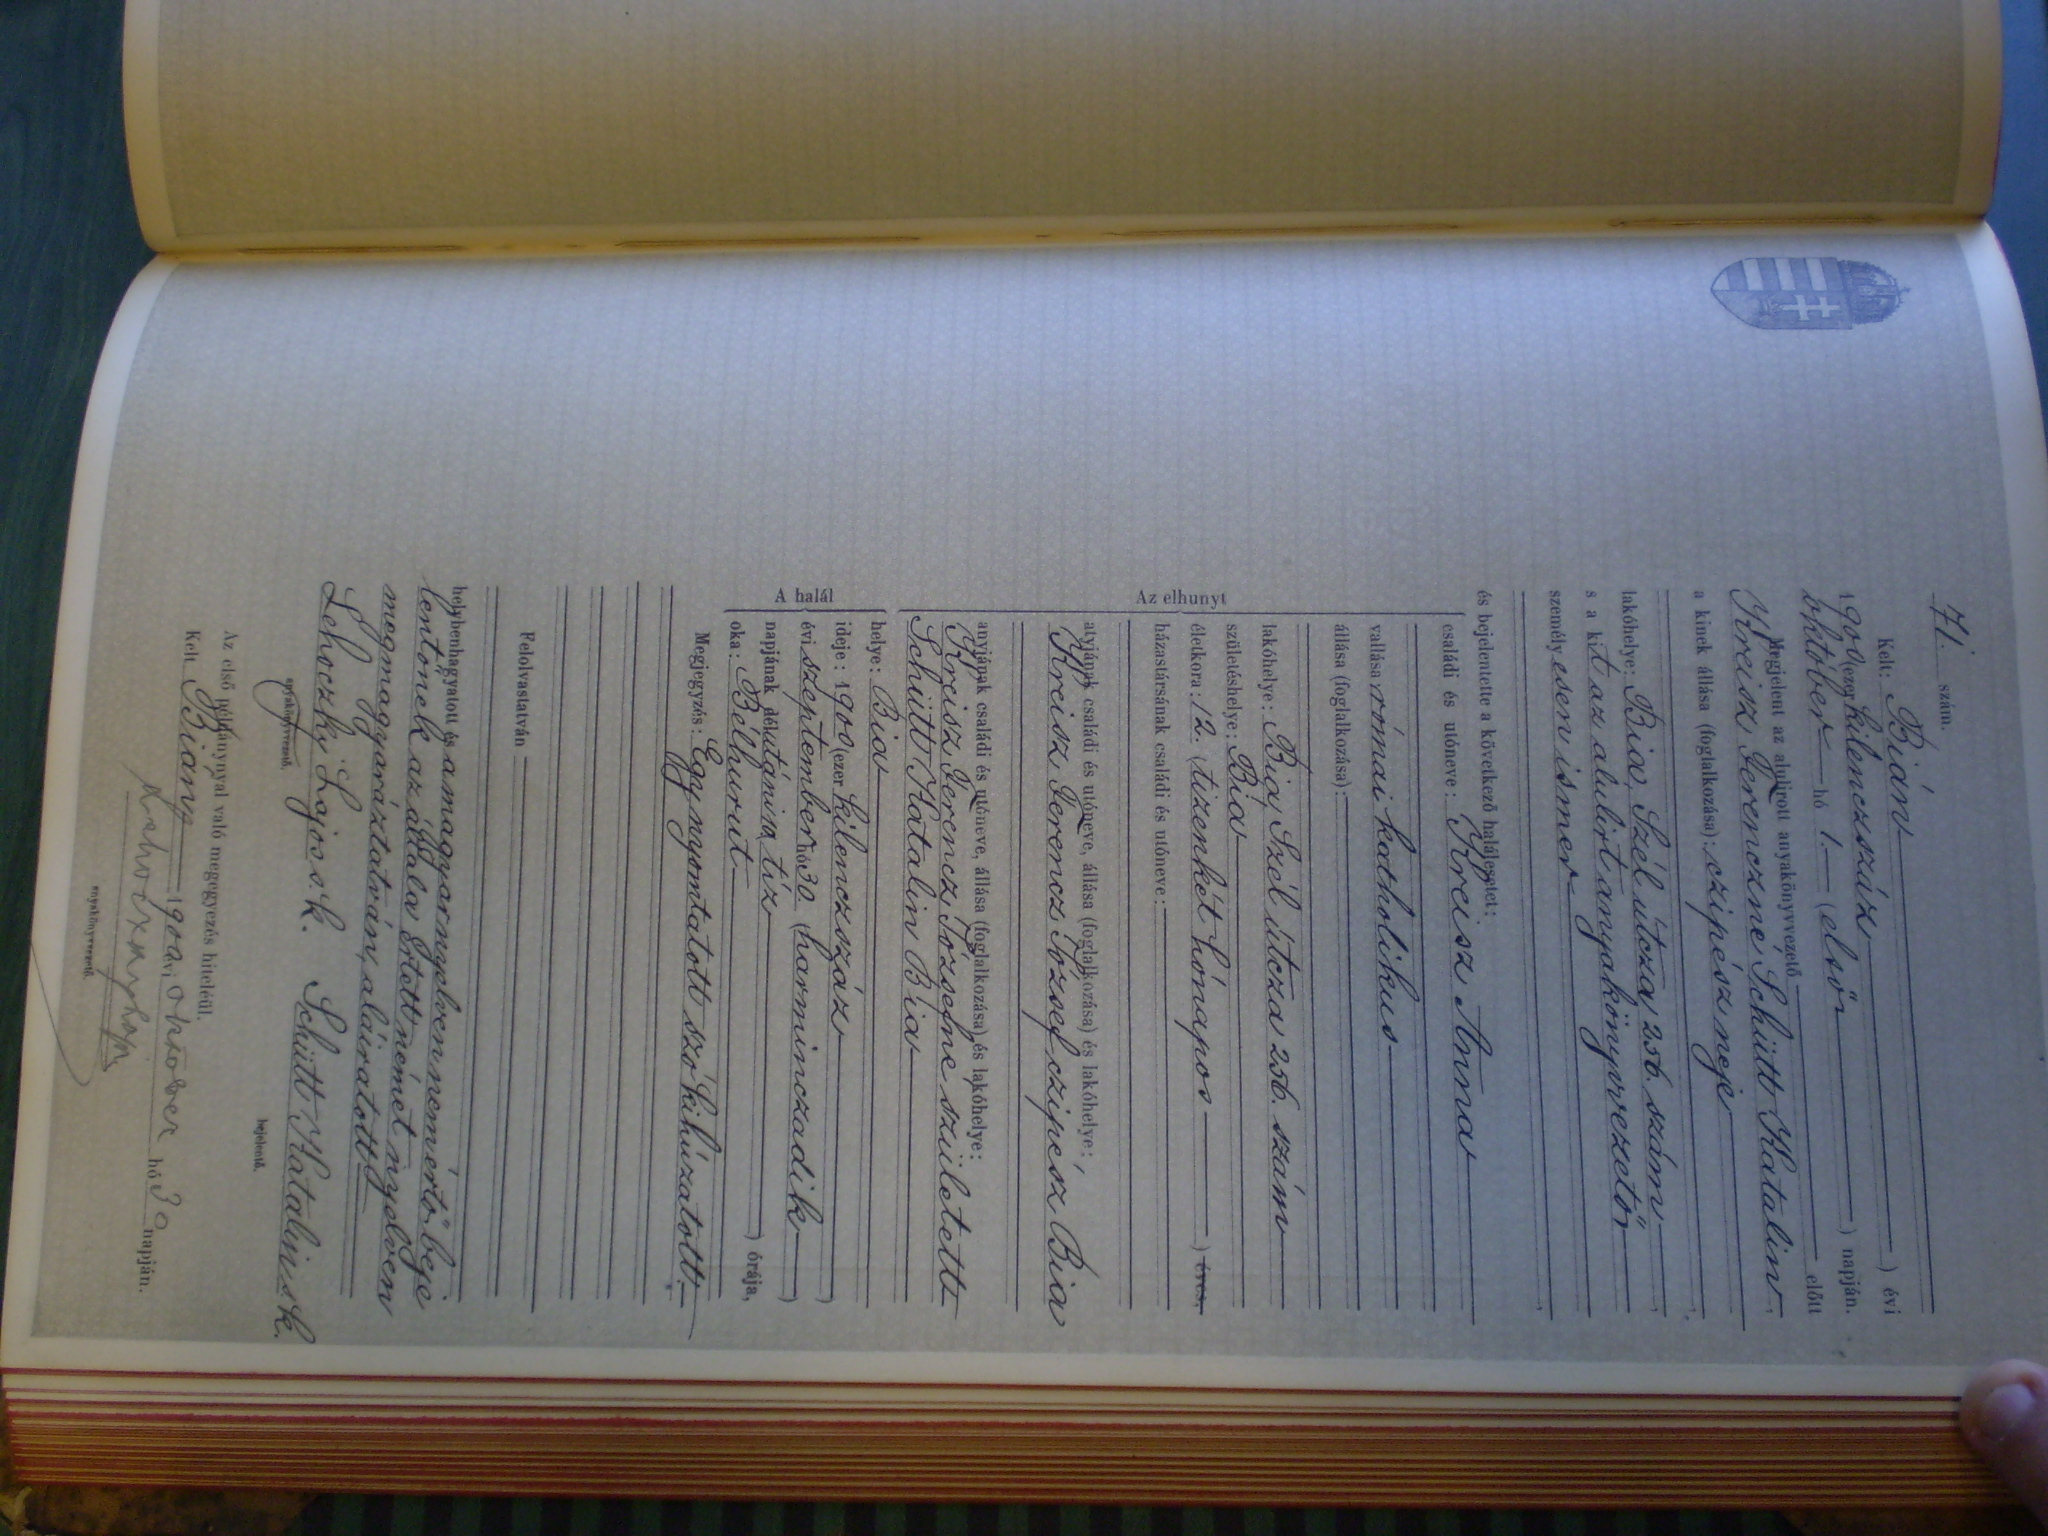 71. szám.
Kelt: Bián
1900 (ezer kilenczszáz) évi
október hó 1. (első) napján.
Megjelent az alulirott anyakönyvvezető előtt
Kreisz Ferenczné Schütt Katalin,
a kinek állása (foglalkozása): czipész neje
lakóhelye: Bia, Szél útcza 256. szám,
s a kit az alulirt anyakönyvvezető
személyesen ismer,
és bejelentette a következő halálesetet:
Az elhunyt
családi és utóneve: Kreisz Anna
vallása római katholikus
állása (foglalkozása):
lakóhelye: Bia, Szél útcza 256. szám
születéshelye: Bia
életkora: 12. (tizenkét hónapos) éves,
házastársának családi és utóneve:
atyjának családi és utóneve, állása (foglalkozása) és lakóhelye:
Kreisz Ferencz József czipész Bia
anyjának családi és utóneve, állása (foglalkozása) és lakóhelye:
Kreisz Ferencz Józsefné született
Schütt Katalin Bia
A halál
helye: Bia
ideje: 1900 (ezer kilenczszáz)
évi szeptember hó 30 (harminczadik)
napjának délutánin tíz órája,
oka: Bélhurut
Megjegyzés: Egy nyomtatott szó kihúzatott.
Felolvastatván
helybenhagyatott és a magyar nyelvben nem értő beje
lentőnek az általa értett német nyelven
megmagyaráztatván, aláiratott
Lehoczky Lajos s.k. Schütt Katalin s.k.
anyakönyvvezető. bejelentő.
Az első példánynyal való megegyezés hiteléül.
Kelt Bián, 1900 évi október hó 30 napján.
anyakönyvvezető.